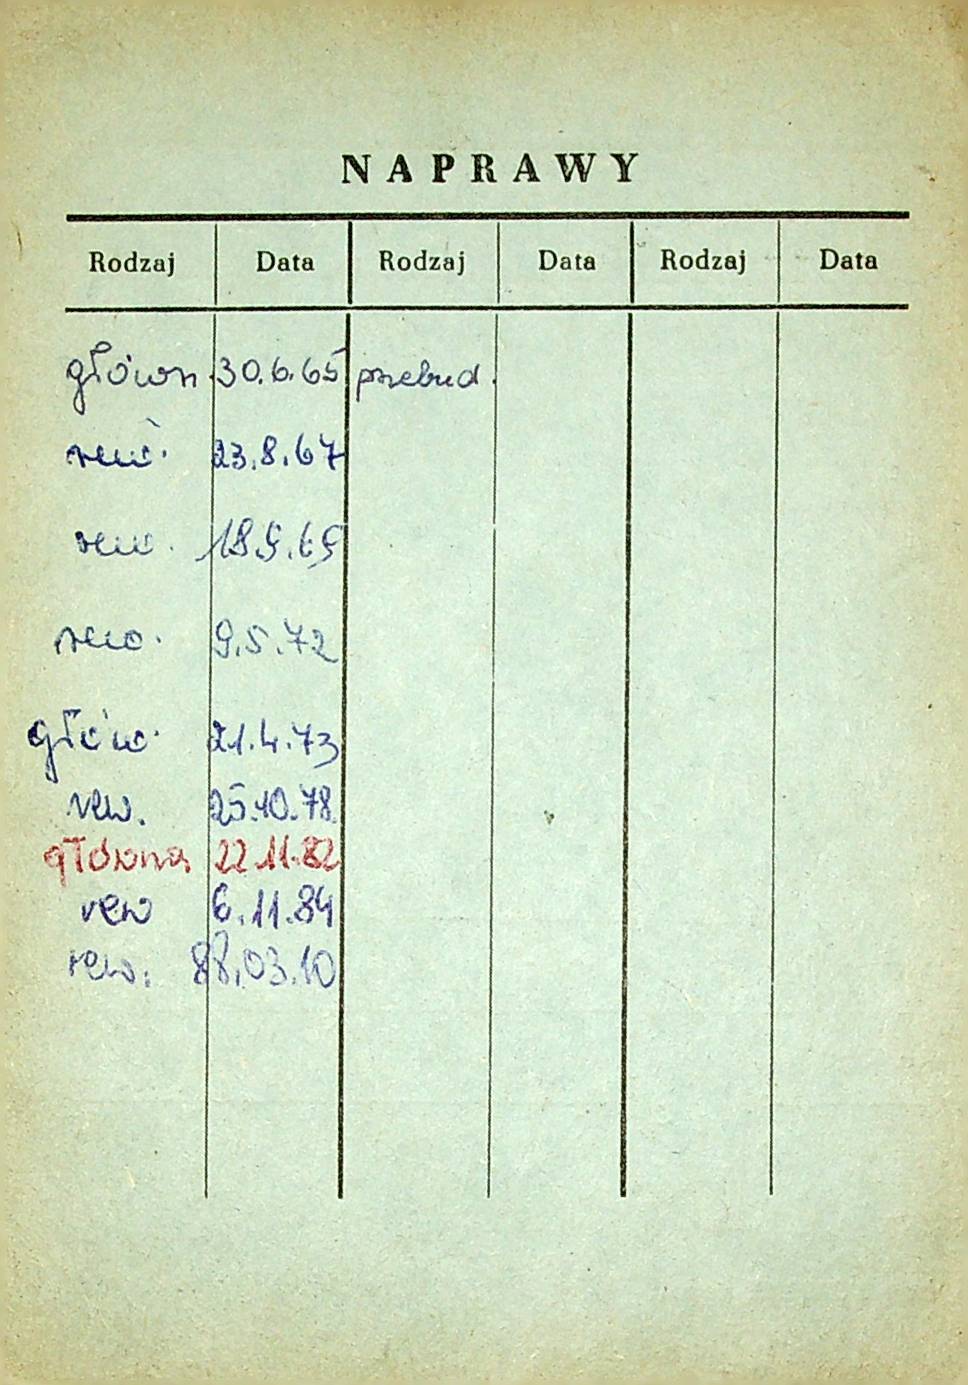 NAPRAWY
Rodzaj Data Rodzaj Data Rodzaj Data
główn. 30.6.65 przebud.
23.8.67
9.5.72
głów. 21.4.73
rew. 25.10.78
główna 22.11.82
rew 6.11.84
rew. 88.03.10